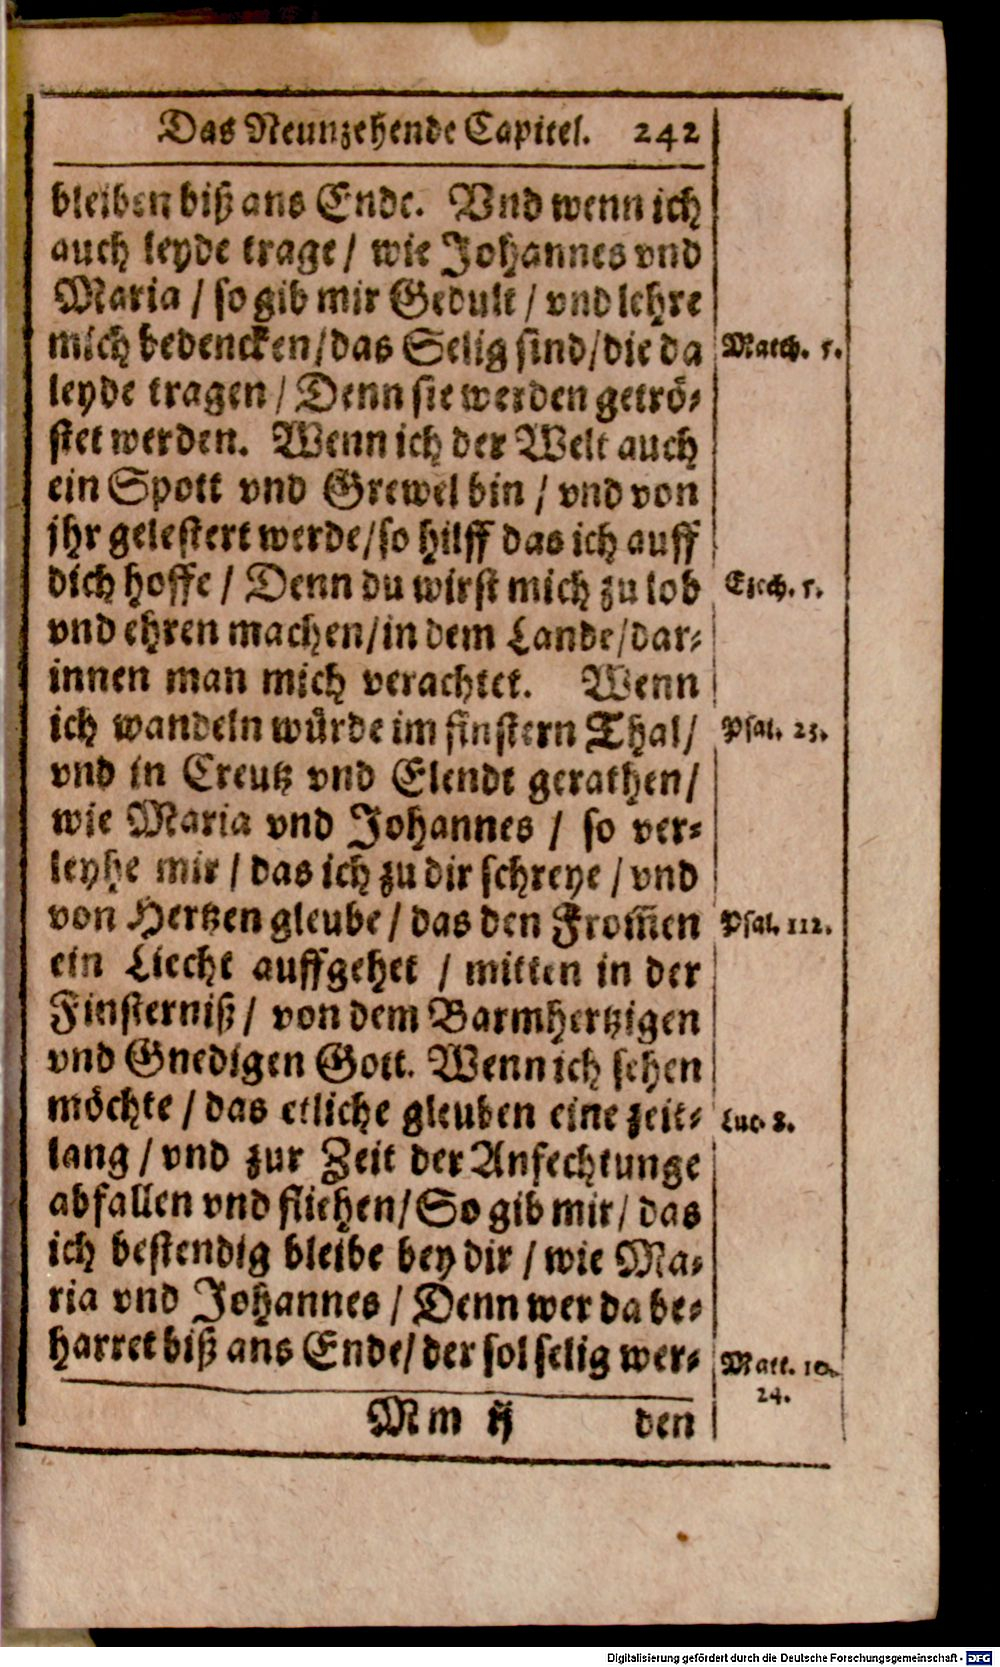 Das Neunzehende Capitel. 242
bleiben biß ans Ende. Vnd wenn ich
auch leyde trage / wie Johannes vnd
Maria / so gib mir Gedult / vnd lehre
mich bedencken / das Selig sind / die da
Matth. 5.
leyde tragen / Denn sie werden getrö-
stet werden. Wenn ich der Welt auch
ein Spott vnd Grewel bin / vnd von
jhr gelestert werde / so hilff das ich auff
dich hoffe / Denn du wirst mich zu lob
Ezech. 5.
vnd ehren machen / in dem Lande / dar-
innen man mich verachtet. Wenn
ich wandeln würde im finstern Thal /
Psal. 23.
vnd in Creutz vnd Elendt gerathen /
wie Maria vnd Johannes / so ver-
leyhe mir / das ich zu dir schreye / vnd
von Hertzen gleube / das den From̃en
Psal. 112.
ein Liecht auffgehet / mitten in der
Finsterniß / von dem Barmhertzigen
vnd Gnedigen Gott. Wenn ich sehen
möchte / das etliche gleuben eine zeit-
Luc. 8.
lang / vnd zur Zeit der Anfechtunge
abfallen vnd fliehen / So gib mir / das
ich bestendig bleibe bey dir / wie Ma-
ria vnd Johannes / Denn wer da be-
harret biß ans Ende / der sol selig wer-
Matt. 10.
24.
Mm ij den
Digitalisierung gefördert durch die Deutsche Forschungsgemeinschaft - DFG